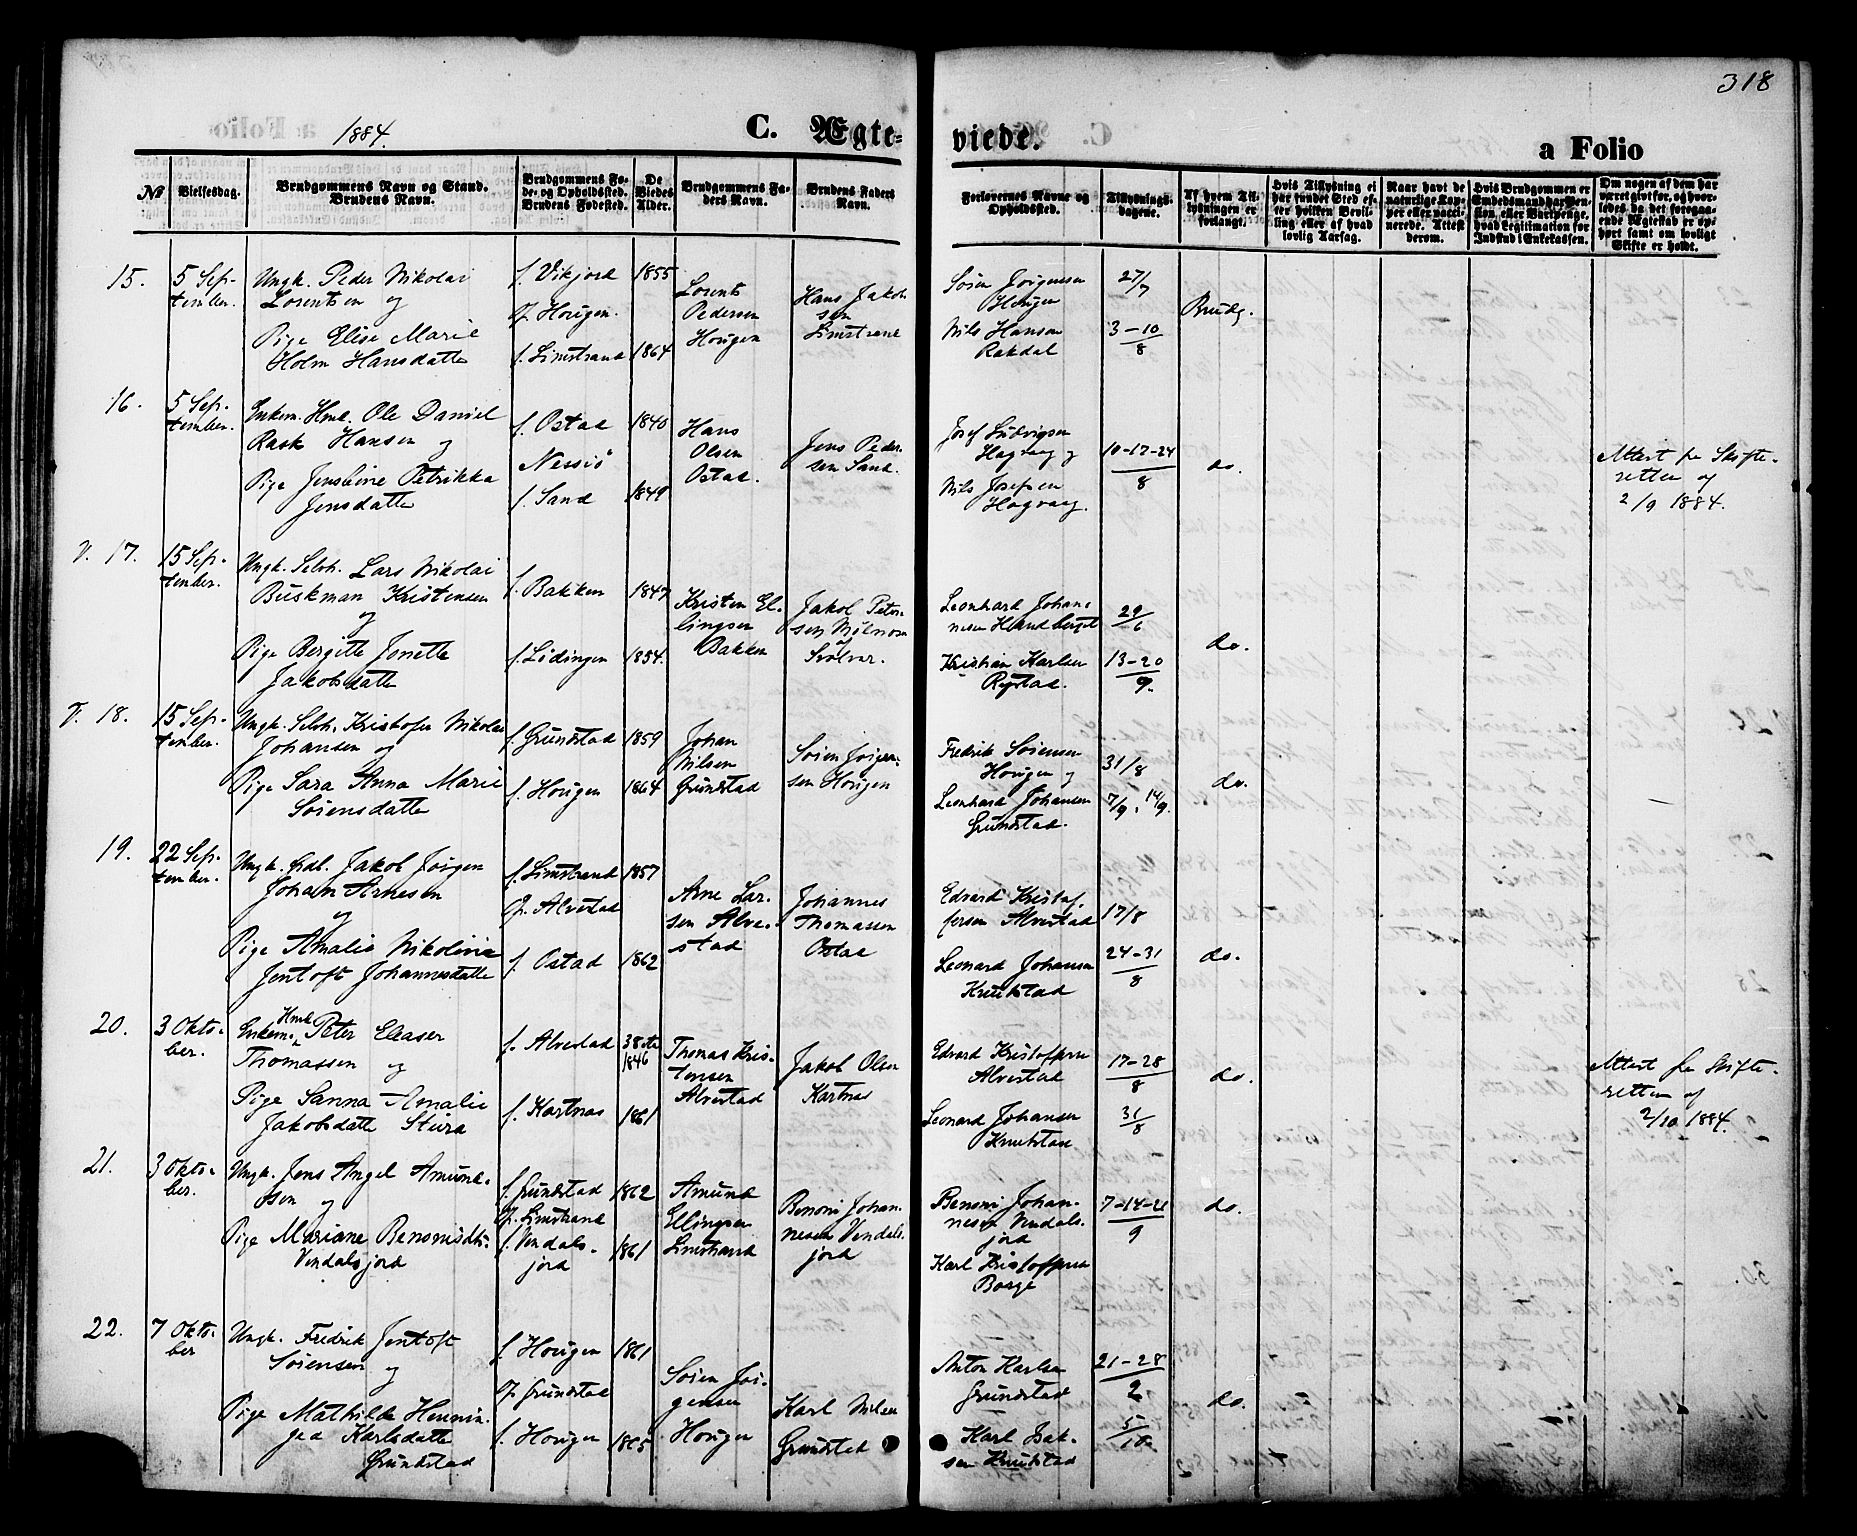 318
1884.
C. Ægte-
viede.
a Folio
№
Vielsesdag.
Brudgommens Navn og Stand.
Brudens Navn.
Brudgommens Fø-
de- og Opholdssted.
Brudens Fødested.
De
Viedes
Alder.
Brudgommens Fa-
ders Navn.
Brudens Faders
Navn.
Forlovernes Navne og
Opholdssted.
Tillysnings-
dagene.
Af hvem Til-
lysningen er
forlangt.
Hvis Tillysning ei
har fundet Sted ef-
ter hvilken Bevil-
ling eller af hvad
lovlig Aarsag.
Naar havt de
naturlige Kop-
per eller vacci-
nerede. Attest
derom.
Hvis Brudgommen er
Embedsmand har Pen-
sion, eller Vartpenge,
hvad Legitimation for
Indskud i Enkekassen.
Om nogen af dem har
været gift før, og hvor-
ledes da det foregaa-
ende Ægteskab er op-
hørt samt om lovligt
Skifte er holdt.
15.
5 Sep-
tember.
Ungk. Peder Nikolai
Lorentsen og
Pige Elise Marie
Holm Hansdatte
f. Vikjord
O. Hougen.
f. Limstrand
1855
1864
Lorents
Pedersen
Hougen
Hans Jakob
sen
Limstrand
Søren Jørgensen
Hougen
Nils Hansen
Rakdal
27/7
3-10
8
Brudg.
16.
5 Sep-
tember.
Enkem. Hmd. Ole Daniel
Rask Hansen og
Pige Jensine Petrikka
Jensdatte
f. Ostad
Nessiö
f. Sand
1840
1849
Hans
Olsen
Ostad.
Jens Peder-
sen Sand.
Josef Ludvigsen
Hagvaag og
Nils Josefsen
Hagvaag.
10-17-24
8
do.
Attest fra Skifte-
retten af
2/9 1884.
V. 17.
15 Sep-
tember.
Ungk. Selvh. Lars Nikolai
Buskman Kristensen
og
Pige Bergitte Jonette
Jakobsdatte
f. Bakken
f. Lödingen
1847
1854.
Kristen El-
lingsen
Bakken
Jakob Peter-
sen Mölnosen
Svolvær.
Leonhard Johan-
nesen Haandberget
Kristian Karlsen
Rystad.
29/6
13-20
9.
do.
V. 18.
15 Sep-
tember.
Ungk. Selvh. Kristofer Nikolai
Johansen og
Pige Sara Anna Marie
Sörensdatte
f. Grundstad
f. Hougen
1859
1864
Johan
Nilsen
Grundstad
Sören Jörgen-
sen Hougen
Fredrik Sörensen
Hougen og
Leonhard Johansen
Grundstad.
31/8
7/9, 14/9.
do.
19.
22 Sep-
tember.
Ungk. Gdl. Jakob Jörgen
Johan Arnesen
og
Pige Amalia Nikolivia
Jentoft Johannesdatte
f. Limstrand
O. Alvestad
f. Ostad
1857
1862
Arne Lar-
sen Alve-
stad
Johannes
Thomassen
Ostad
Edvard Kristof-
fersen Alvestad
Leonard Johansen
Knutstad
17/8
24-31
8
do.
20.
3 Okto-
ber.
Enkem. Hmd. Peter Eleaser
Thomassen og
Pige Sanna Amalie
Jakobsdatte Stura
f. Alvestad
f. Kartnæs
38 de
1846
1861
Thomas Kris-
tensen
Alvestad
Jakob Olsen
Kartnæs
Edvard Kristoffersen
Alvestad
Leonard Johansen
Knutstad
17-28
8
31/8
do.
Attest fra Skifte-
retten af
2/10 1884.
21.
3 Okto-
ber.
Ungk. Jens Angel Amund-
sen og
Pige Mariane Benonisdtr.
Vendalsjord
f. Grundstad
O. Limstrand
f. Vendals-
jord
1862
1861
Amund
Ellingsen
Limstrand
Benoni Johan-
nesen Vendals-
jord
Benoni Johan-
nesen Vendals-
jord
Karl Kristoffersen
Borge
7-14-21
9
do.
22.
7 Okto-
ber
Ungk. Fredrik Jentoft
Sörensen og
Pige Mathilde Hennin-
gea Karlsdatte
Grundstad
f. Hougen
O. Grundstad
f. Hougen
1861
1865
Sören Jör-
gensen
Hougen
Karl Nilsen
Grundstad
Anton Karlsen
Grundstad
Karl Isak-
sen Knutstad
21-28
2
5/10
do.